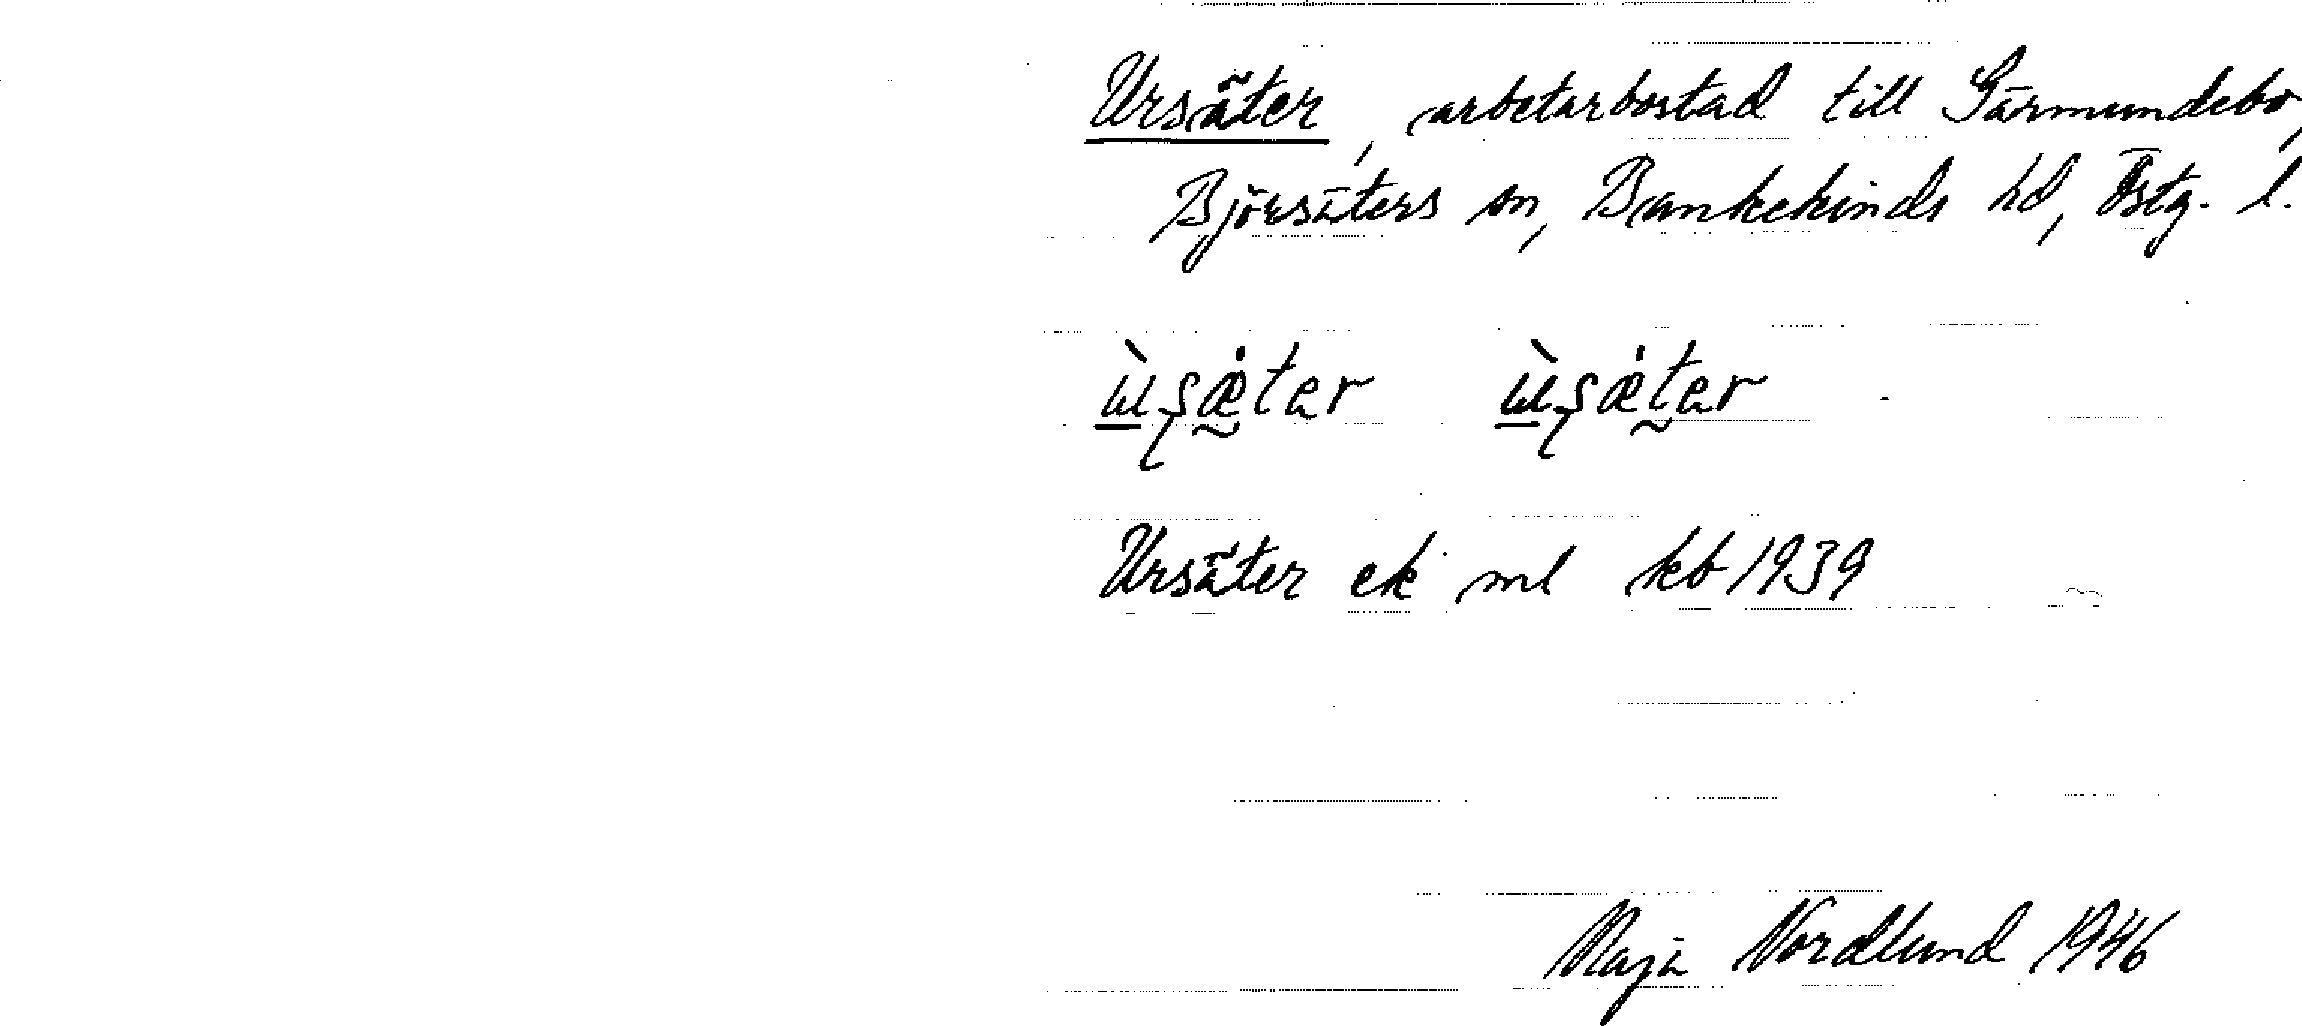 Ursäter, arbetarbostad till Särmundebo,
Björsäters sn, Bankekinds hd, Östg. l.
Ursäter ek ml kb 1939
Maja Nordlund 1946